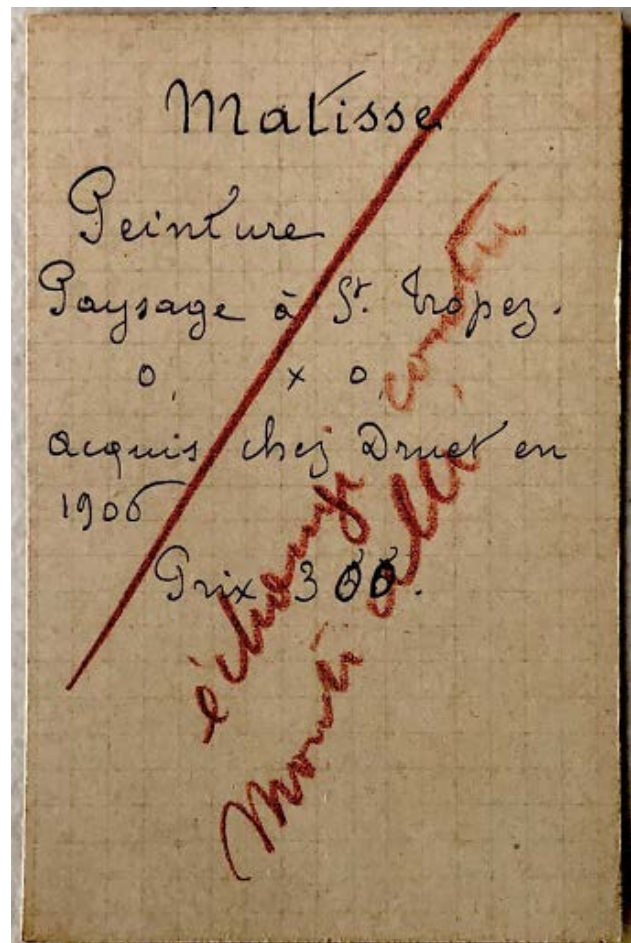 Matisse
Peinture
Paysage à St. Tropez.
0, x 0,
acquis chez Druet en
1906
Prix 300.
échangé contre